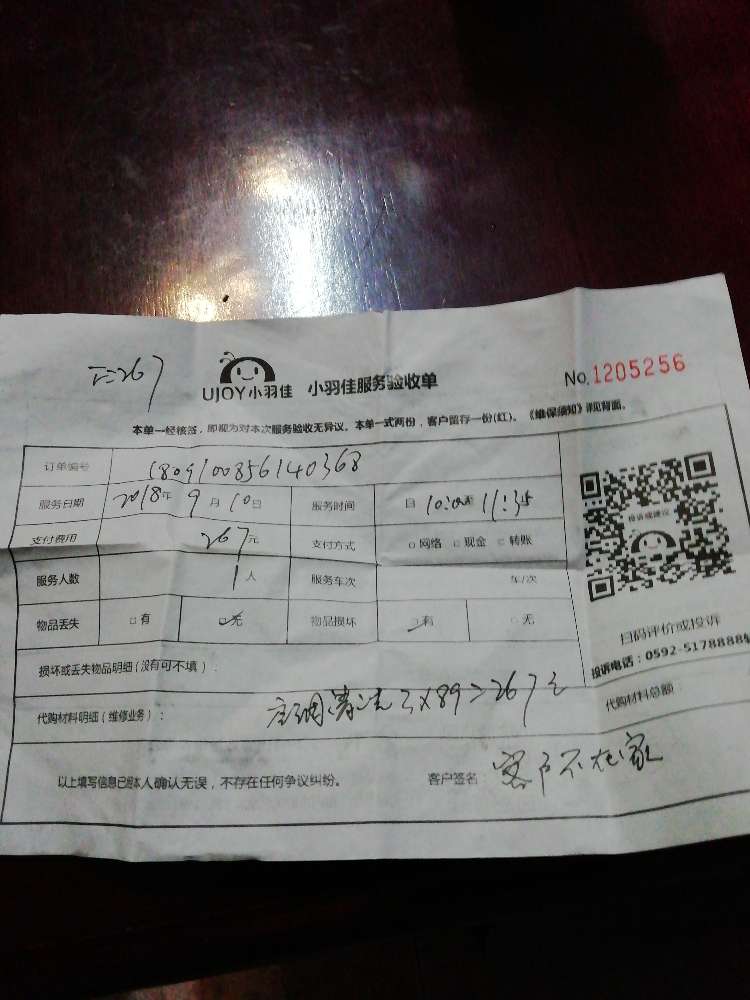 UJOY小羽佳 小羽佳服务验收单 No.1205256
本单一经核签，即视为对本次服务验收无异议。本单一式两份，客户留存一份(红)。《维保须知》详见背面。
订单编号 1809100856140368
服务日期 2018年9月10日 服务时间 自10:00至11:35
支付费用 267元 支付方式 □网络 □现金 □转账
服务人数 1人 服务车次 车/次
物品丢失 □有 □无 物品损坏 □有 □无
损坏或丢失物品明细(没有可不填)：
代购材料明细(维修业务)： 空调清洗3X89=267元
代购材料总额
以上填写信息已经本人确认无误，不存在任何争议纠纷。 客户签名 客户不在家
投诉或建议
扫码评价或投诉
投诉电话：0592-5178888转